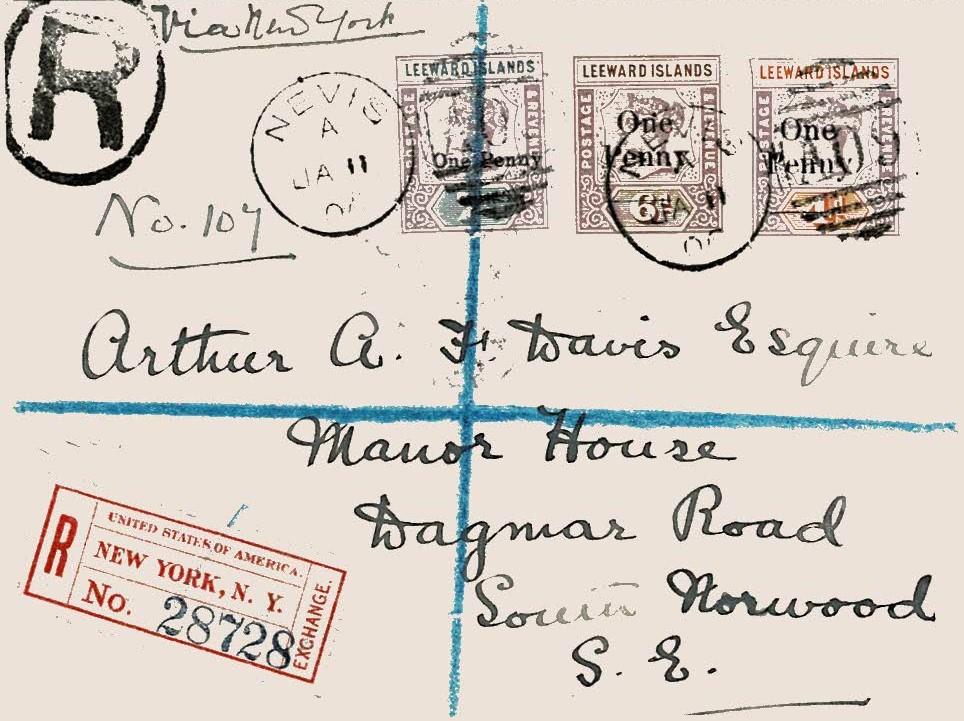 Via New York
R
LEEWARD ISLANDS
POSTAGE & REVENUE
One Penny
LEEWARD ISLANDS
POSTAGE REVENUE
One
Penny
6D
LEEWARD ISLANDS
POSTAGE & REVENUE
One
Penny
NEVIS
A
JA 11
JA 11
No. 107
Arthur A. F. Davis Esquire
Manor House
Dagmar Road
South Norwood
S. E.
R
UNITED STATES OF AMERICA.
NEW YORK, N. Y.
No. 28728
EXCHANGE.